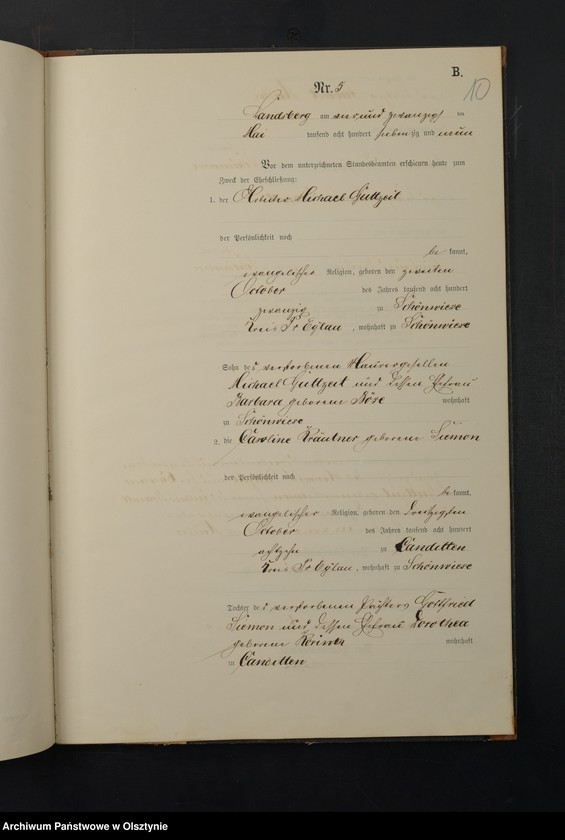 B.
10
Nr. 5
Landsberg am vier und zwanzigsten
Mai tausend acht hundert siebenzig und neun
Vor dem unterzeichneten Standesbeamten erschienen heute zum
Zweck der Eheschließung:
1. der Michael Guttzeit
der Persönlichkeit nach
be kannt,
evangelischer Religion, geboren den zweiten
October des Jahres tausend acht hundert
zwanzig zu Schönwiese
Kreis Pr Eylau, wohnhaft zu Schönwiese
Sohn des verstorbenen Maurergesellen
Michael Guttzeit und dessen Ehefrau
Barbara geborene Böse wohnhaft
zu Schönwiese
2. die Caroline Kräutner geborene Siemon
der Persönlichkeit nach
be kannt,
evangelischer Religion, geboren den
October des Jahres tausend acht hundert
achtzehn zu Canditten
Kreis Pr Eylau, wohnhaft zu Schönwiese
Tochter des verstorbenen Gottfried
Siemon und dessen Ehefrau Dorothea
geborene wohnhaft
zu Canditten
Archiwum Państwowe w Olsztynie